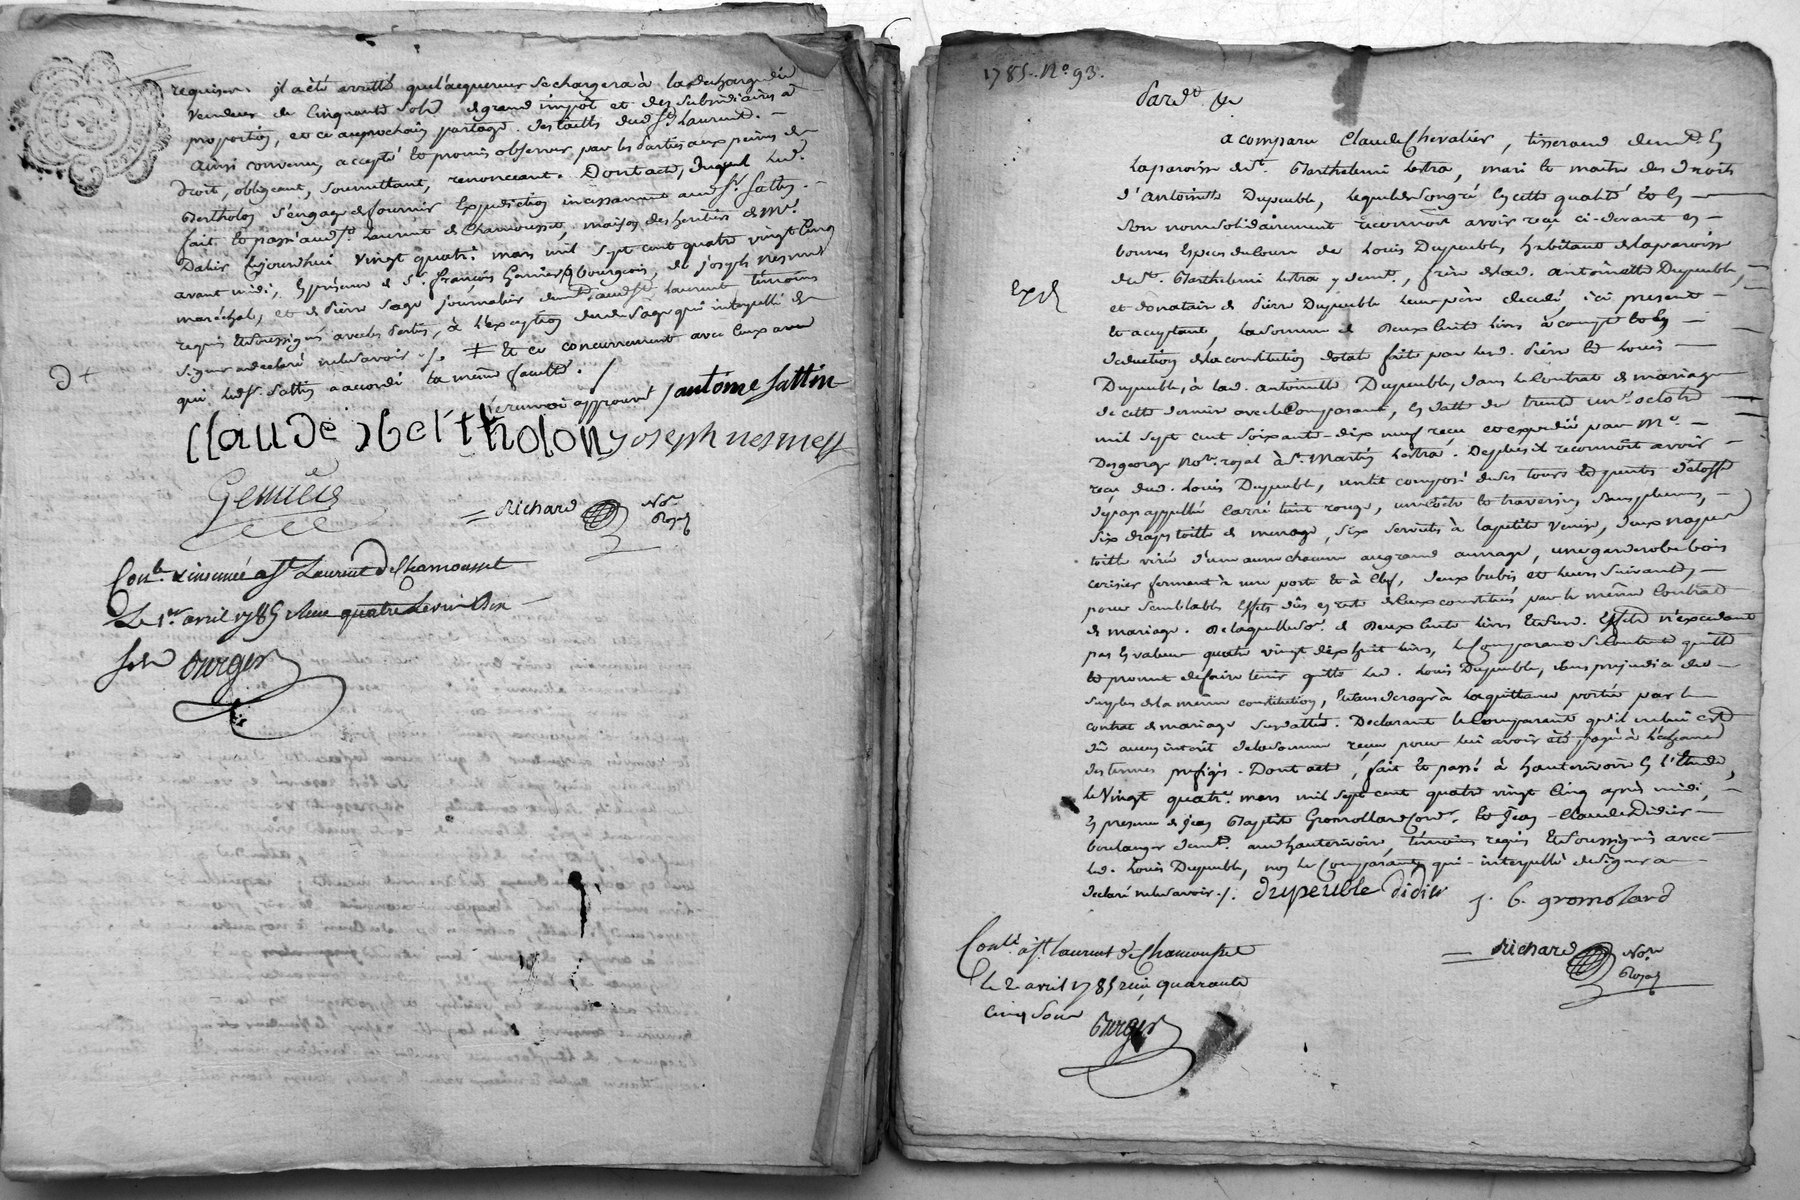 requiser. il a été arretté que l'acquereur se chargera à la decharge du
Vendeur de Cinquante sols de grand impôt et des subsidiaires à
proportion, et ce au prochain partage des tailles dud. St. Laurent. —
Ainsi convenu, accepté et promis observer par les parties aux peines de
droit, obligeant, soumettant, renonceant. Dont acte, duquel led.
Bertholon s'engage de fournir Expedition incessament aud. Sr. Sattin. —
fait et passé aud. St. Laurent de Chamousset, maison des heritiers de Mr.
Dalier Aujourdhui vingt quatre mars mil sept cent quatre vingt Cinq
avant midi, En présence de Sr. françois Geniere bourgeois, de joseph nesmes
maréchal, et de Pierre Sage journalier demt. aud. St. Laurent témoins
requis et soussignés avec les parties, à l'exception dud. Sage qui interpellé de
signer a declaré ne le savoir ./. ‡ Et ce concurrement avec Ceux avec
qui led. Sr. Sattin a accordé la même faculté. /
D +
le renvoi approuvé antoine Sattin
Claude Bertholon joseph nesmes
Geniere
= Richard Nore.
Royal
Conlé. & insinué a St Laurent de Chamousset
Le 1er avril 1785 Reçu quatre livres Dix
sols Burger
1785. No. 93.
Pardt. &c
A comparu Claude Chevalier, tisserand demt. En
la paroisse de St. Barthelemi lestra, mari et maître des droits
d'Antoinette Dupeuble, lequel de son gré En cette qualité et En —
son nom solidairement reconnoit avoir reçu ci-devant en —
bonnes Especes de Cours de Louis Dupeuble, habitant de la paroisse
de St. Barthelemi lestra y demt., frère de lad. Antoinette Dupeuble,
Expé
et donataire de Pierre Dupeuble leur père decedé, ici present —
et acceptant, la somme de Deux Cents livres à compte et En —
deduction de la constitution dotale faite par led. Pierre et Louis —
Dupeuble, à lad. Antoinette Dupeuble, dans le Contrat de mariage
de cette derniere avec le Comparant, En datte du trente un octobre
mil sept cent soixante-dix neuf reçu et expedié par Me. —
Desgeorge Nore. royal à St. Martin Lestra. De plus il reconnoit avoir —
reçu dud. Louis Dupeuble, un lit composé de ses tours et pentes d'étoffe
de pays appellée Carré teint rouge, une couette et traversin sans plumes, —
Six draps toille de menage, Six serviettes à la petite Venise, deux nappes
toille virée d'une aune chacune au grand aunage, une garderobe bois
cerisier fermant à une porte et à Clef, deux brebis et leurs suivants, —
pour semblables Effets dûs en reste de Ceux constitués par le même Contrat
de mariage. De laquelle so. de Deux Cents livres et desd. Effets n'excedant
pas En valeur quatre vingt dix huit livres, le Comparant Se contente quitte
et promet de faire tenir quitte led. Louis Dupeuble, sans prejudice du —
surplus de la même constitution, et sans deroger à la quittance portée par le
contrat de mariage sus datté. Declarant le Comparant qu'il ne lui est
dû aucun interêt de la somme reçue pour lui avoir été payé à l'échance
des termes prefigés. Dont acte, fait et passé à hauterivoire En l'Etude,
le vingt quatre mars mil sept cent quatre vingt Cinq après midi, —
En presence de Jean Baptiste Gromollard cordr. et Jean-Claude Didier —
boulanger demt. aud. hauterivoire, témoins requis et soussignés avec
led. Louis Dupeuble, non le Comparant, qui interpellé de signer a —
declaré ne le savoir ./. dupeuble Didier J. B. gromolard
Conlé. à St Laurent de Chamousset
Le 2 avril 1785 reçu quarante
cinq sous Burger
= Richard Nore.
Royal